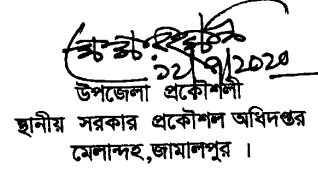 ১২/৭/2020
উপজেলা প্রকৌশলী
স্থানীয় সরকার প্রকৌশল অধিদপ্তর
মেলান্দহ,জামালপুর ।